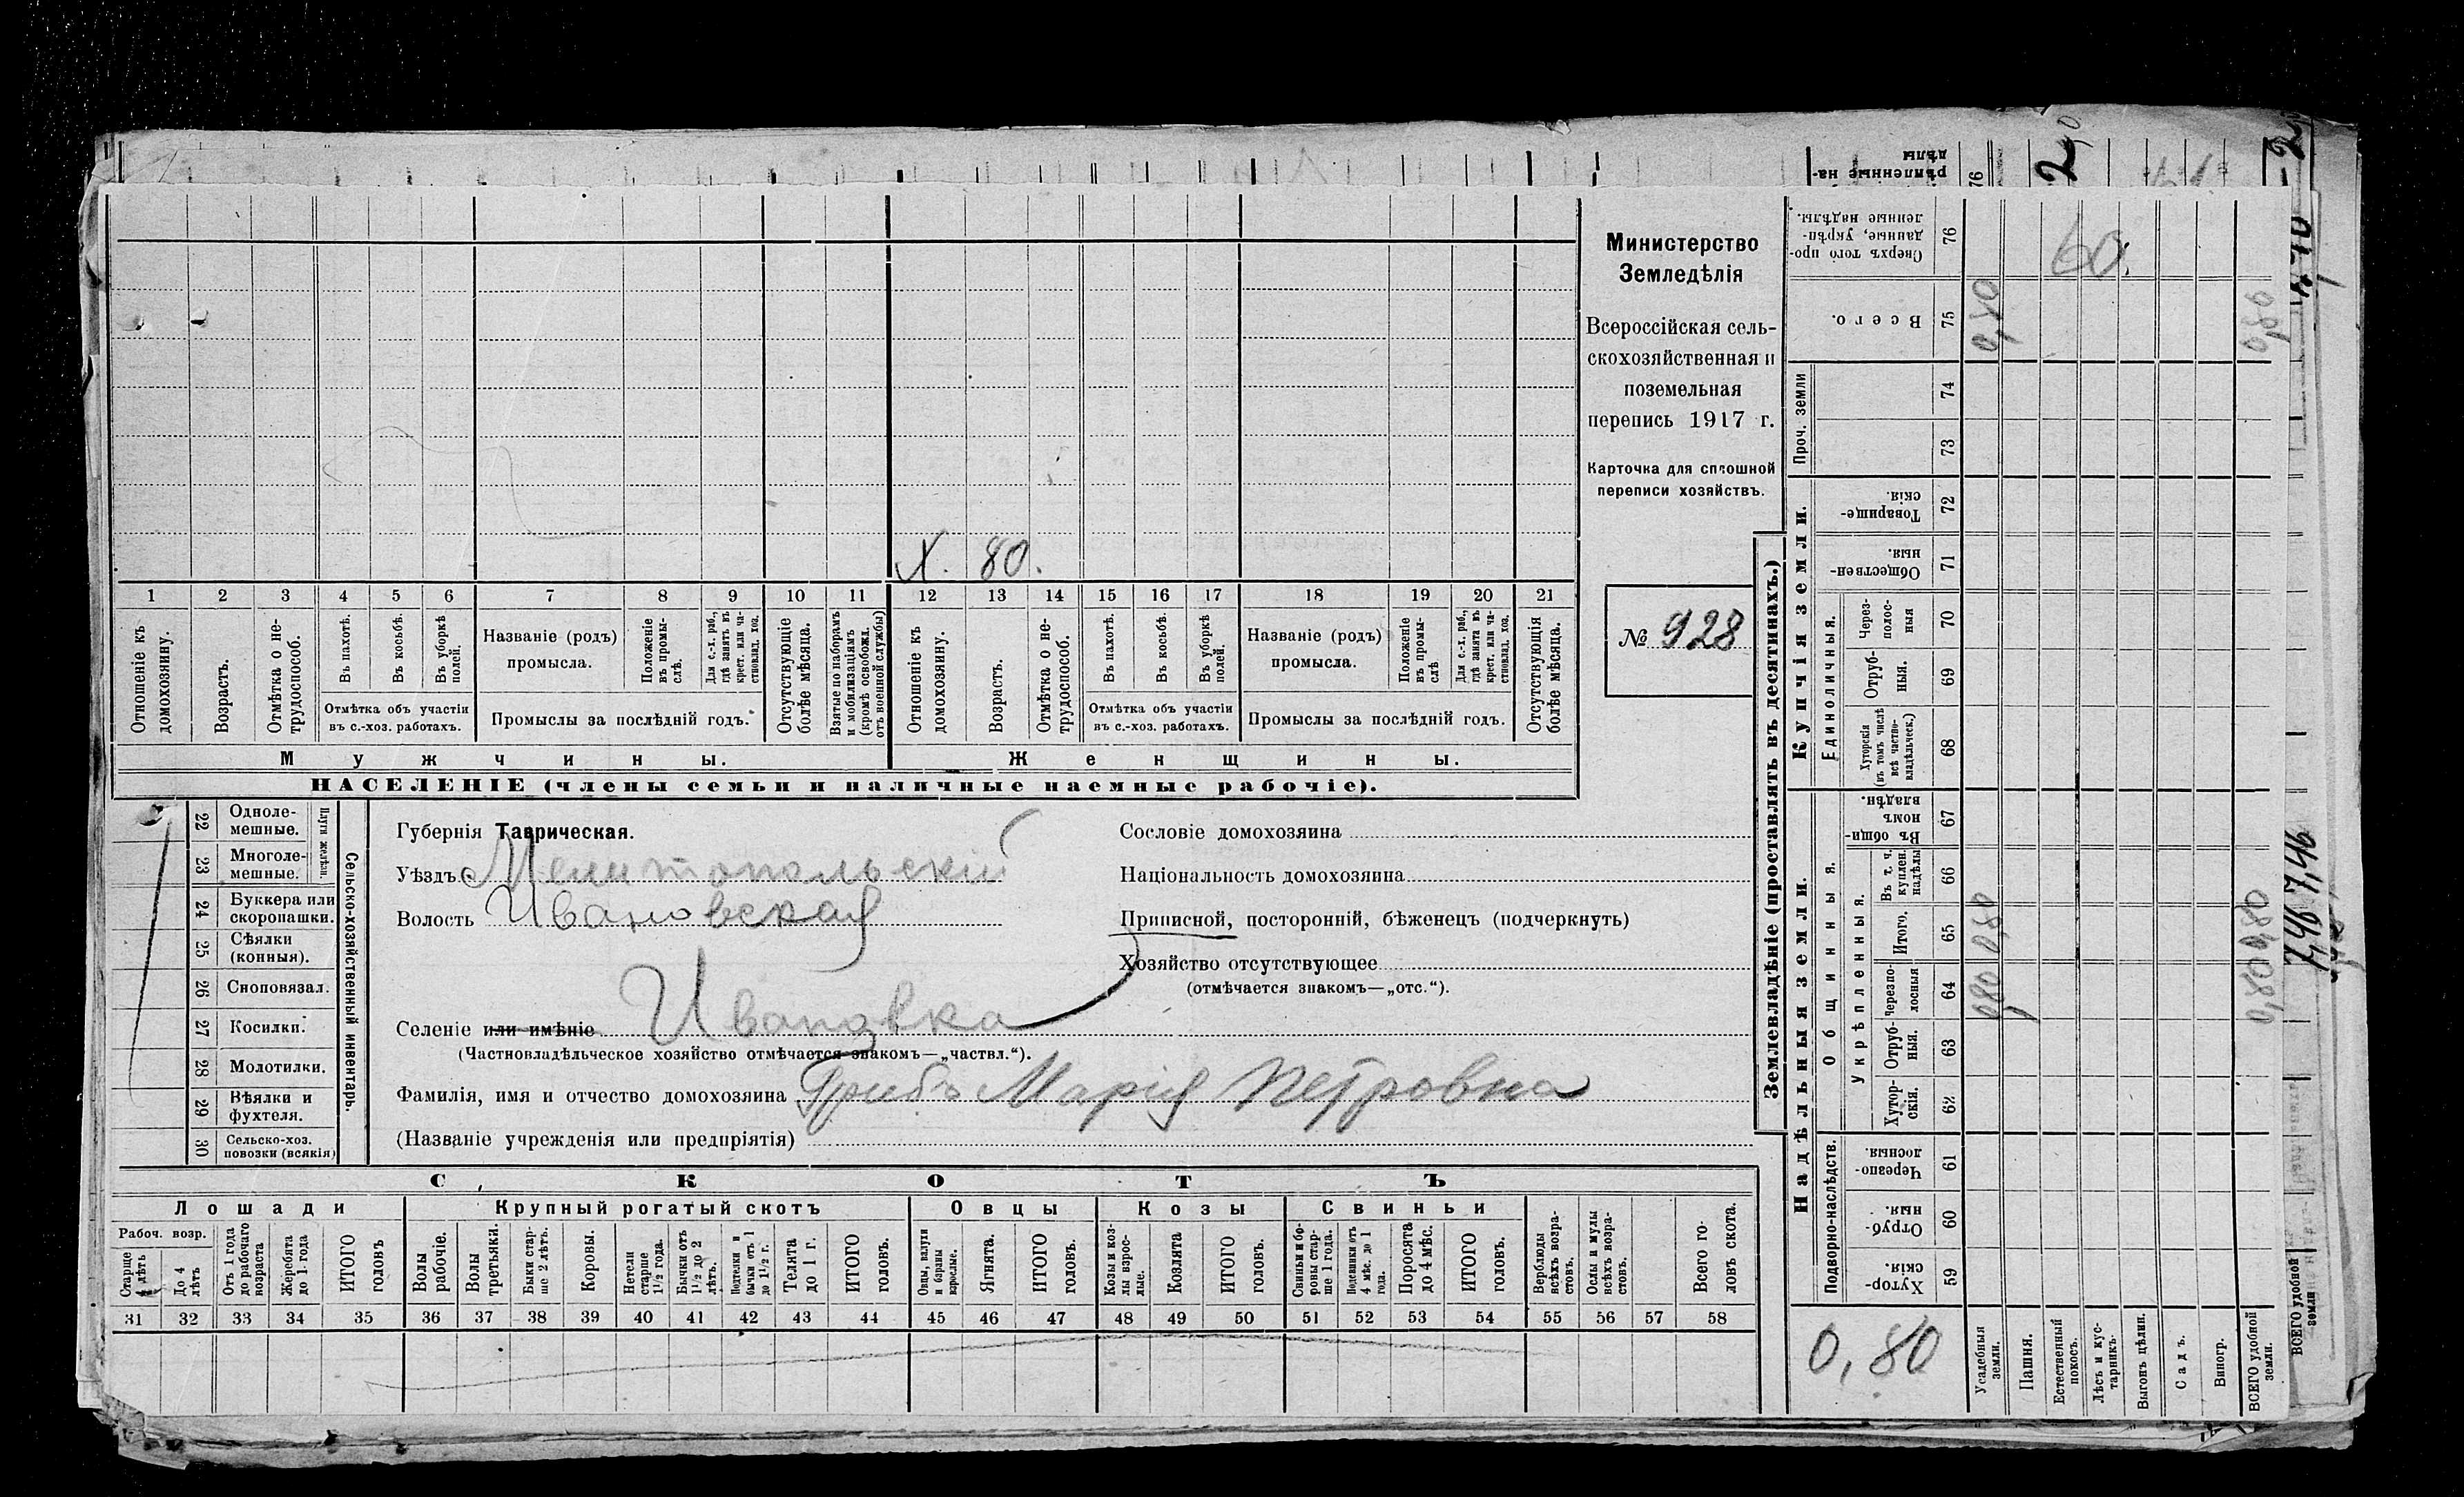 Министерство
Земледѣлія
Всероссійская сель-
скохозяйственная и
поземельная
перепись 1917 г.
Карточка для сплошной
переписи хозяйствъ.
№ 928
X. 80.
1 2 3 4 5 6 7 8 9 10 11 12 13 14 15 16 17 18 19 20 21
Отношеніе къ домохозяину.
Возрастъ.
Отмѣтка о не-трудоспособ.
Въ пахотѣ.
Въ косьбѣ.
Въ уборкѣ полей.
Отмѣтка объ участіи
въ с.-хоз. работахъ.
Названіе (родъ)
промысла.
Положеніе въ промы-слѣ.
Для с.-х. раб., гдѣ занятъ въ крест. или ча-стновлад. хоз.
Промыслы за послѣдній годъ.
Отсутствующіе болѣе мѣсяца.
Взятые по наборамъ и мобилизаціямъ (кромѣ освобожд. отъ военной службы)
Отношеніе къ домохозяину.
Возрастъ.
Отмѣтка о не-трудоспособ.
Въ пахотѣ.
Въ косьбѣ.
Въ уборкѣ полей.
Отмѣтка объ участіи
въ с.-хоз. работахъ.
Названіе (родъ)
промысла.
Положеніе въ промы-слѣ
Для с.-х. раб., гдѣ занята въ крест. или ча-стновлад. хоз.
Промыслы за послѣдній годъ.
Отсутствующія болѣе мѣсяца.
Мужчины. Женщины.
НАСЕЛЕНІЕ (члены семьи и наличные наемные рабочіе).
22 Одноле-мешные.
23 Многоле-мешные.
Плуги желѣзн.
24 Буккера или скоропашки.
25 Сѣялки (конныя).
26 Сноповязал.
27 Косилки.
28 Молотилки.
29 Вѣялки и фухтеля.
30 Сельско-хоз. повозки (всякія)
Сельско-хозяйственный инвентарь.
Губернія Таврическая.
Уѣздъ Мелитопольскій
Волость Ивановская
Селеніе или имѣніе Ивановка
(Частновладѣльческое хозяйство отмѣчается знакомъ—„частвл.“).
Фамилія, имя и отчество домохозяина Грибъ Марія Петровна
(Названіе учрежденія или предпріятія)
Сословіе домохозяина
Національность домохозяина
Приписной, посторонній, бѣженецъ (подчеркнуть)
Хозяйство отсутствующее
(отмѣчается знакомъ—„отс.“).
СКОТЪ
Лошади Крупный рогатый скотъ Овцы Козы Свиньи
Рабоч. возр.
Старше 4 лѣтъ
До 4 лѣтъ
Отъ 1 года до рабочаго возраста
Жеребята до 1 года
ИТОГО головъ
Волы рабочіе.
Волы третьяки.
Быки стар-ше 2 лѣтъ.
Коровы.
Нетели старше 1½ года.
Бычки отъ 1½ до 2 лѣтъ.
Подтелки и бычки отъ 1 до 1½ г.
Телята до 1 г.
ИТОГО головъ.
Овцы, валухи и бараны взрослые.
Ягнята.
ИТОГО головъ.
Козы и коз-лы взрос-лые.
Козлята
ИТОГО головъ.
Свиньи и бо-ровы стар-ше 1 года.
Подсвинки отъ 4 мѣс. до 1 года.
Поросята до 4 мѣс.
ИТОГО головъ.
Верблюды всѣхъ возра-стовъ.
Ослы и мулы всѣхъ возра-стовъ.
Всего го-ловъ скота.
31 32 33 34 35 36 37 38 39 40 41 42 43 44 45 46 47 48 49 50 51 52 53 54 55 56 57 58
Землевладѣніе (проставлять въ десятинахъ.)
Сверхъ того про-данные, укрѣп-ленные надѣлы. 76 60.
Всего. 75 0,80 0,80
Проч. земли 74
73
Купчія земли.
Товарище-скія. 72
Обществен-ныя. 71
Единоличныя.
Через-полос-ныя 70
Отруб-ныя. 69
Хуторскія (въ томъ числѣ всѣ частно-владѣльческ.) 68
Надѣльныя земли.
Общинныя.
Въ общи-номъ владѣн. 67
Укрѣпленныя.
Въ т. ч. куплен. надѣлы 66
Итого. 65 0,80 0,80
Черезпо-лосныя 64 0,80 0,80
Отруб-ныя. 63
Хутор-скія. 62
Подворно-наслѣдств.
Черезпо-лосныя. 61
Отруб-ныя. 60
Хутор-скія. 59
0,80
Усадебныя земли.
Пашня.
Естественный покосъ.
Лѣсъ и кус-тарникъ.
Выгонъ цѣлин.
Садъ.
Виногр.
ВСЕГО удобной земли.
ВСЕГО удобной земли
7,46 7,46